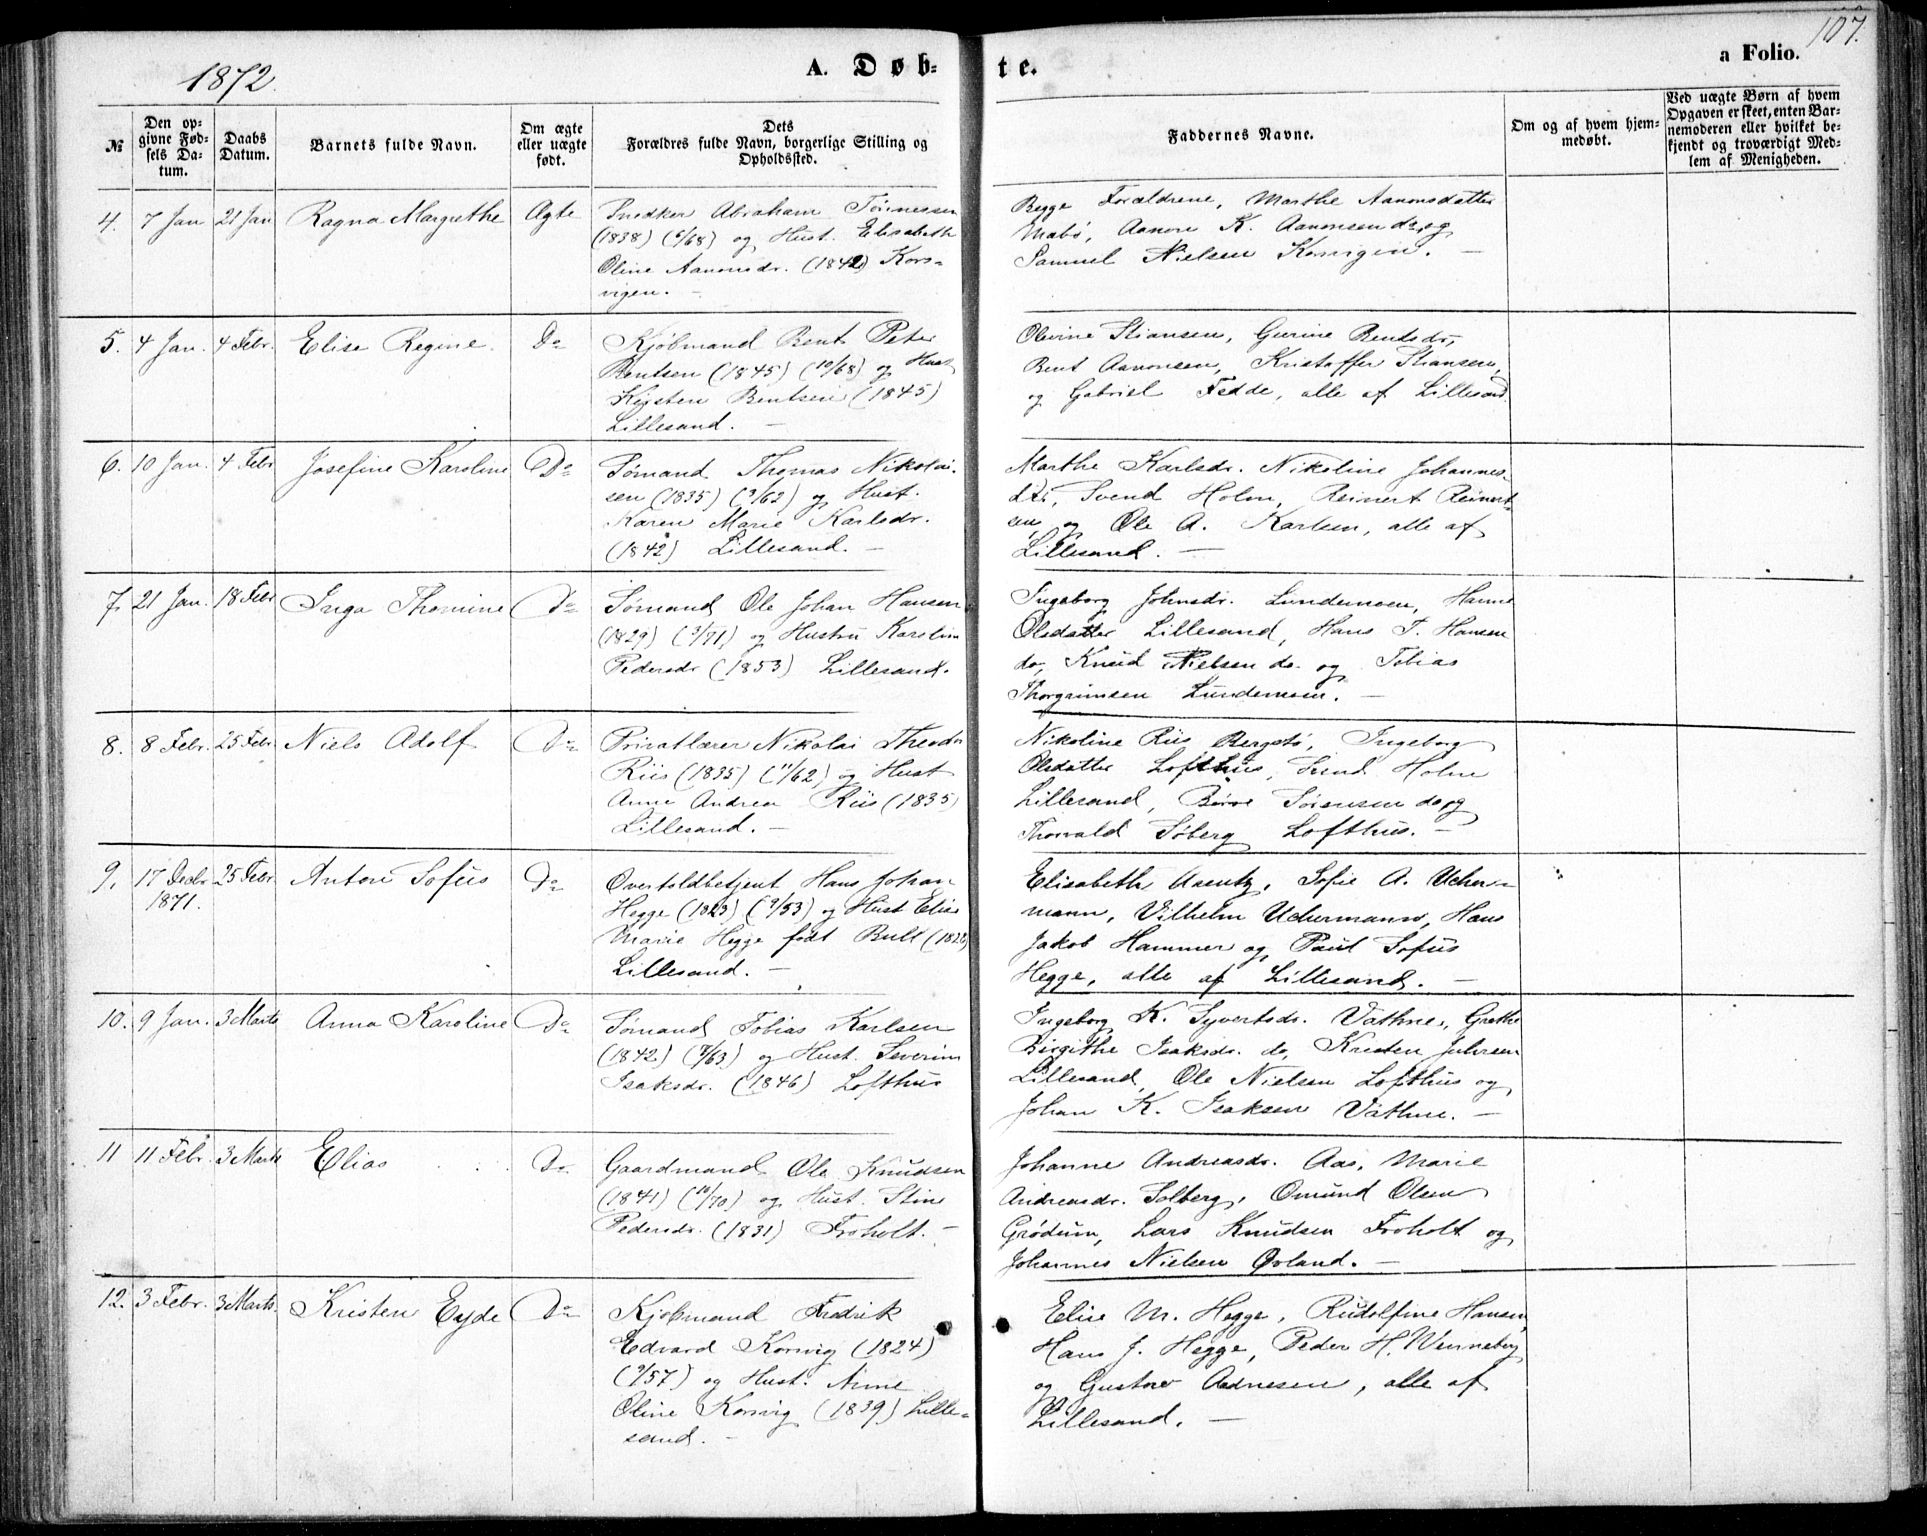 107.
1872.
A. Døb-
te.
a Folio.
№
Den op-
givne Fød-
sels Da-
tum.
Daabs
Datum.
Barnets fulde Navn.
Om ægte
eller uægte
født.
Dets
Forældres fulde Navn, borgerlige Stilling og
Opholdssted.
Faddernes Navne.
Om og af hvem hjem-
medøbt.
Ved uægte Børn af hvem
Opgaven er skeet, enten Bar-
nemoderen eller hvilket be-
kjendt og troværdigt Med-
lem af Menigheden.
4. 7 Jan 21 Jan Ragna Margrethe Ægte
Snedker Abraham Tønnessen
(1838) (6/68) og Hust. Elisabeth
Oline Aanonsdr. (1842) Kors-
vigen. —
Begge Forældrene, Marthe Aanonsdatter
Mæbø, Aanon K. Aanonsen do, og
Samuel Nielsen Korsvigen. —
5. 4 Jan. 4 Febr. Elise Regine. Do
Kjøbmand Bent Peter
Bentsen (1845) (10/68) og Hust
Kirsten Bentsen (1845)
Lillesand. —
Olevine Stiansen, Gurine Bentsdr,
Bent Aanonsen, Kristoffer Stiansen,
og Gabriel Fedde, alle af Lillesand.
6. 10 Jan. 4 Febr Josefine Karoline Do
Sømand Thomas Nikolai-
sen (1835) (3/62) og Hust.
Karen Marie Karlsdr.
(1842) Lillesand. —
Marthe Karlsdr. Nikoline Johannes-
dtr, Svend Holm, Reinert Reinert-
sen, og Ole A. Karlsen, alle af
Lillesand. —
7. 21 Jan. 18 Febr Inga Thomine Do
Sømand Ole Johan Hansen
(1829) (3/71) og Hustru Karoline
Pedersdr (1853) Lillesand.
Ingeborg Johnsdr. Lundemoen, Hanne
Olsdatter Lillesand, Hans T. Hansen
do, Knud Nielsen do. og Tobias
Thorgrimsen Lundemoen. —
8. 8 Febr. 25 Febr. Niels Adolf Do
Privatlærer Nikolai Theodor
Riis (1835) (11/62) og Hust
Anne Andrea Riis (1835)
Lillesand. —
Nikoline Riis Bergstø, Ingeborg
Olsdatter Lofthus, Svend Holm
Lillesand, Børre Sørensen do og
Thorvald Søberg Lofthus. —
9. 17 Decbr 25 Febr. Anton Sofus Do
1871.
Overtoldbetjent Hans Johan
Hegge (1823) (9/53) og Hust Elise
Marie Hegge født Bull (1828)
Lillesand. —
Elisabeth Arentz, Sofie A. Ucher-
mann, Vilhelm Uchermann, Hans
Jakob Hammer og Paul Sofus
Hegge, alle af Lillesand. —
10. 9 Jan. 3 Marts Anna Karoline Do
Sømand Tobias Karlsen
(1842) (7/63) og Hust. Severine
Isaksdr. (1846) Lofthus
Ingeborg K. Syvertsdr. Vathne, Grethe
Birgithe Isaksdr. do, Kristen Juhlsen
Lillesand, Ole Nielsen Lofthus og
Johan K. Isaksen Vathne. —
11 11 Febr. 3 Marts Elias Do
Gaardmand Ole Knudsen
(1841) (10/70) og Hust. Stine
Pedersdr. (1831) Froholt. —
Johanne Andreasdr. Aas, Marie
Andreasdr. Solberg, Omund Olsen
Grødum, Lars Knudsen Froholt og
Johannes Nielsen Øvland. —
12. 3 Febr. 3 Marts Kristen Eyde Do
Kjøbmand Fredrik
Edvard Korsvig (1824)
(9/57) og Hust. Anne
Oline Korsvig (1839) Lille-
sand. —
Elise M. Hegge, Rudolfine Hansen,
Hans J. Hegge, Peder H. Wenneberg
og Gustav Adnesen, alle af
Lillesand. —